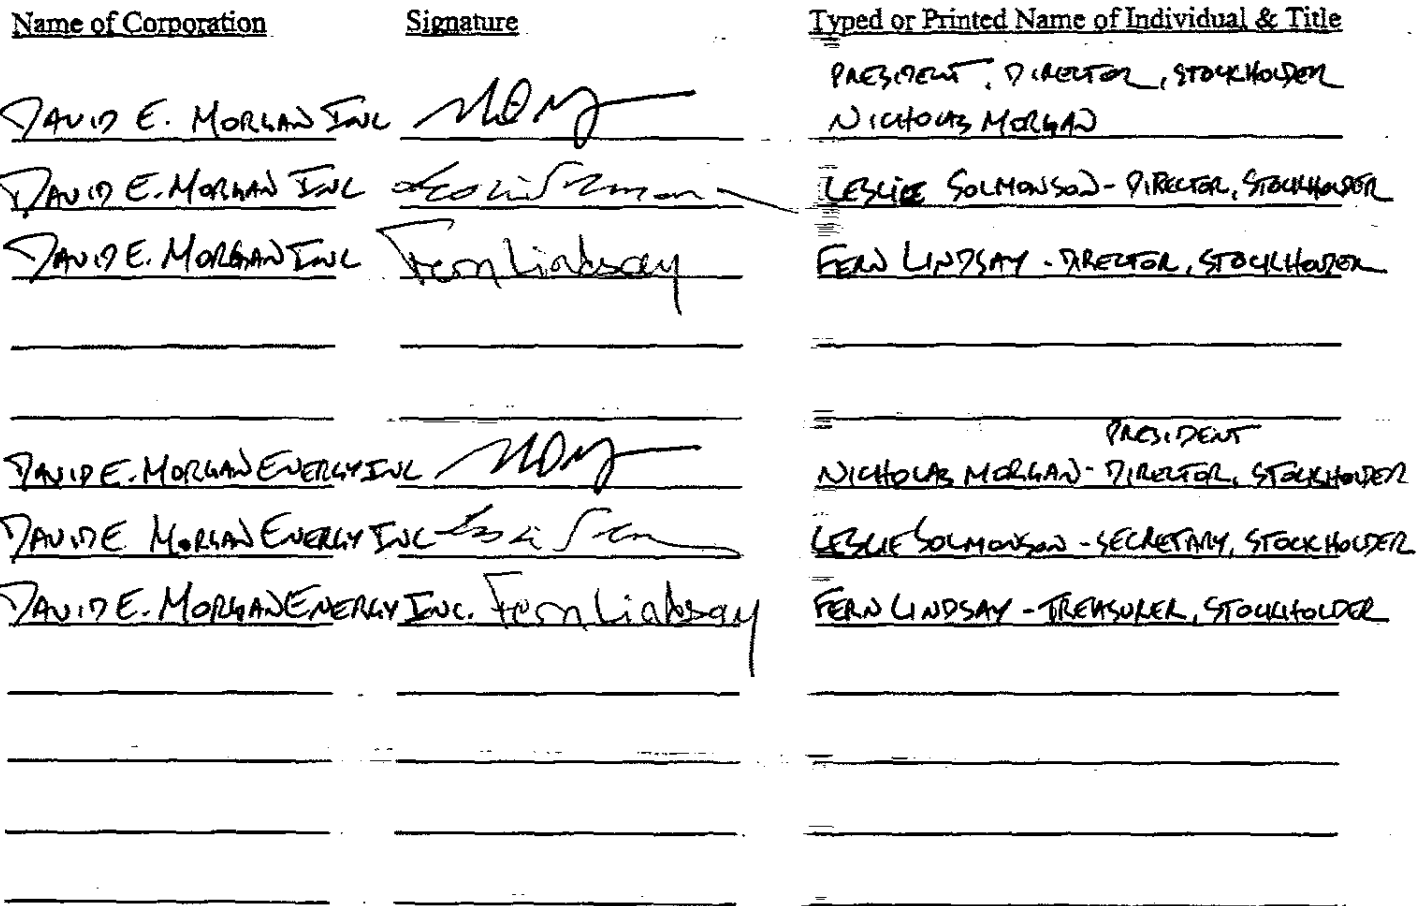 Name of Corporation Signature Typed or Printed Name of Individual & Title
PRESIDENT, DIRECTOR, STOCKHOLDER
DAVID E. MORGAN INC NICHOLAS MORGAN
DAVID E. MORGAN INC LESLIE SOLMONSON - DIRECTOR, STOCKHOLDER
DAVID E. MORGAN INC Fern Lindsay FERN LINDSAY - DIRECTOR, STOCKHOLDER
PRESIDENT
DAVID E. MORGAN ENERGY INC NICHOLAS MORGAN - DIRECTOR, STOCKHOLDER
DAVID E MORGAN ENERGY INC LESLIE SOLMONSON - SECRETARY, STOCKHOLDER
DAVID E. MORGAN ENERGY INC. Fern Lindsay FERN LINDSAY - TREASURER, STOCKHOLDER